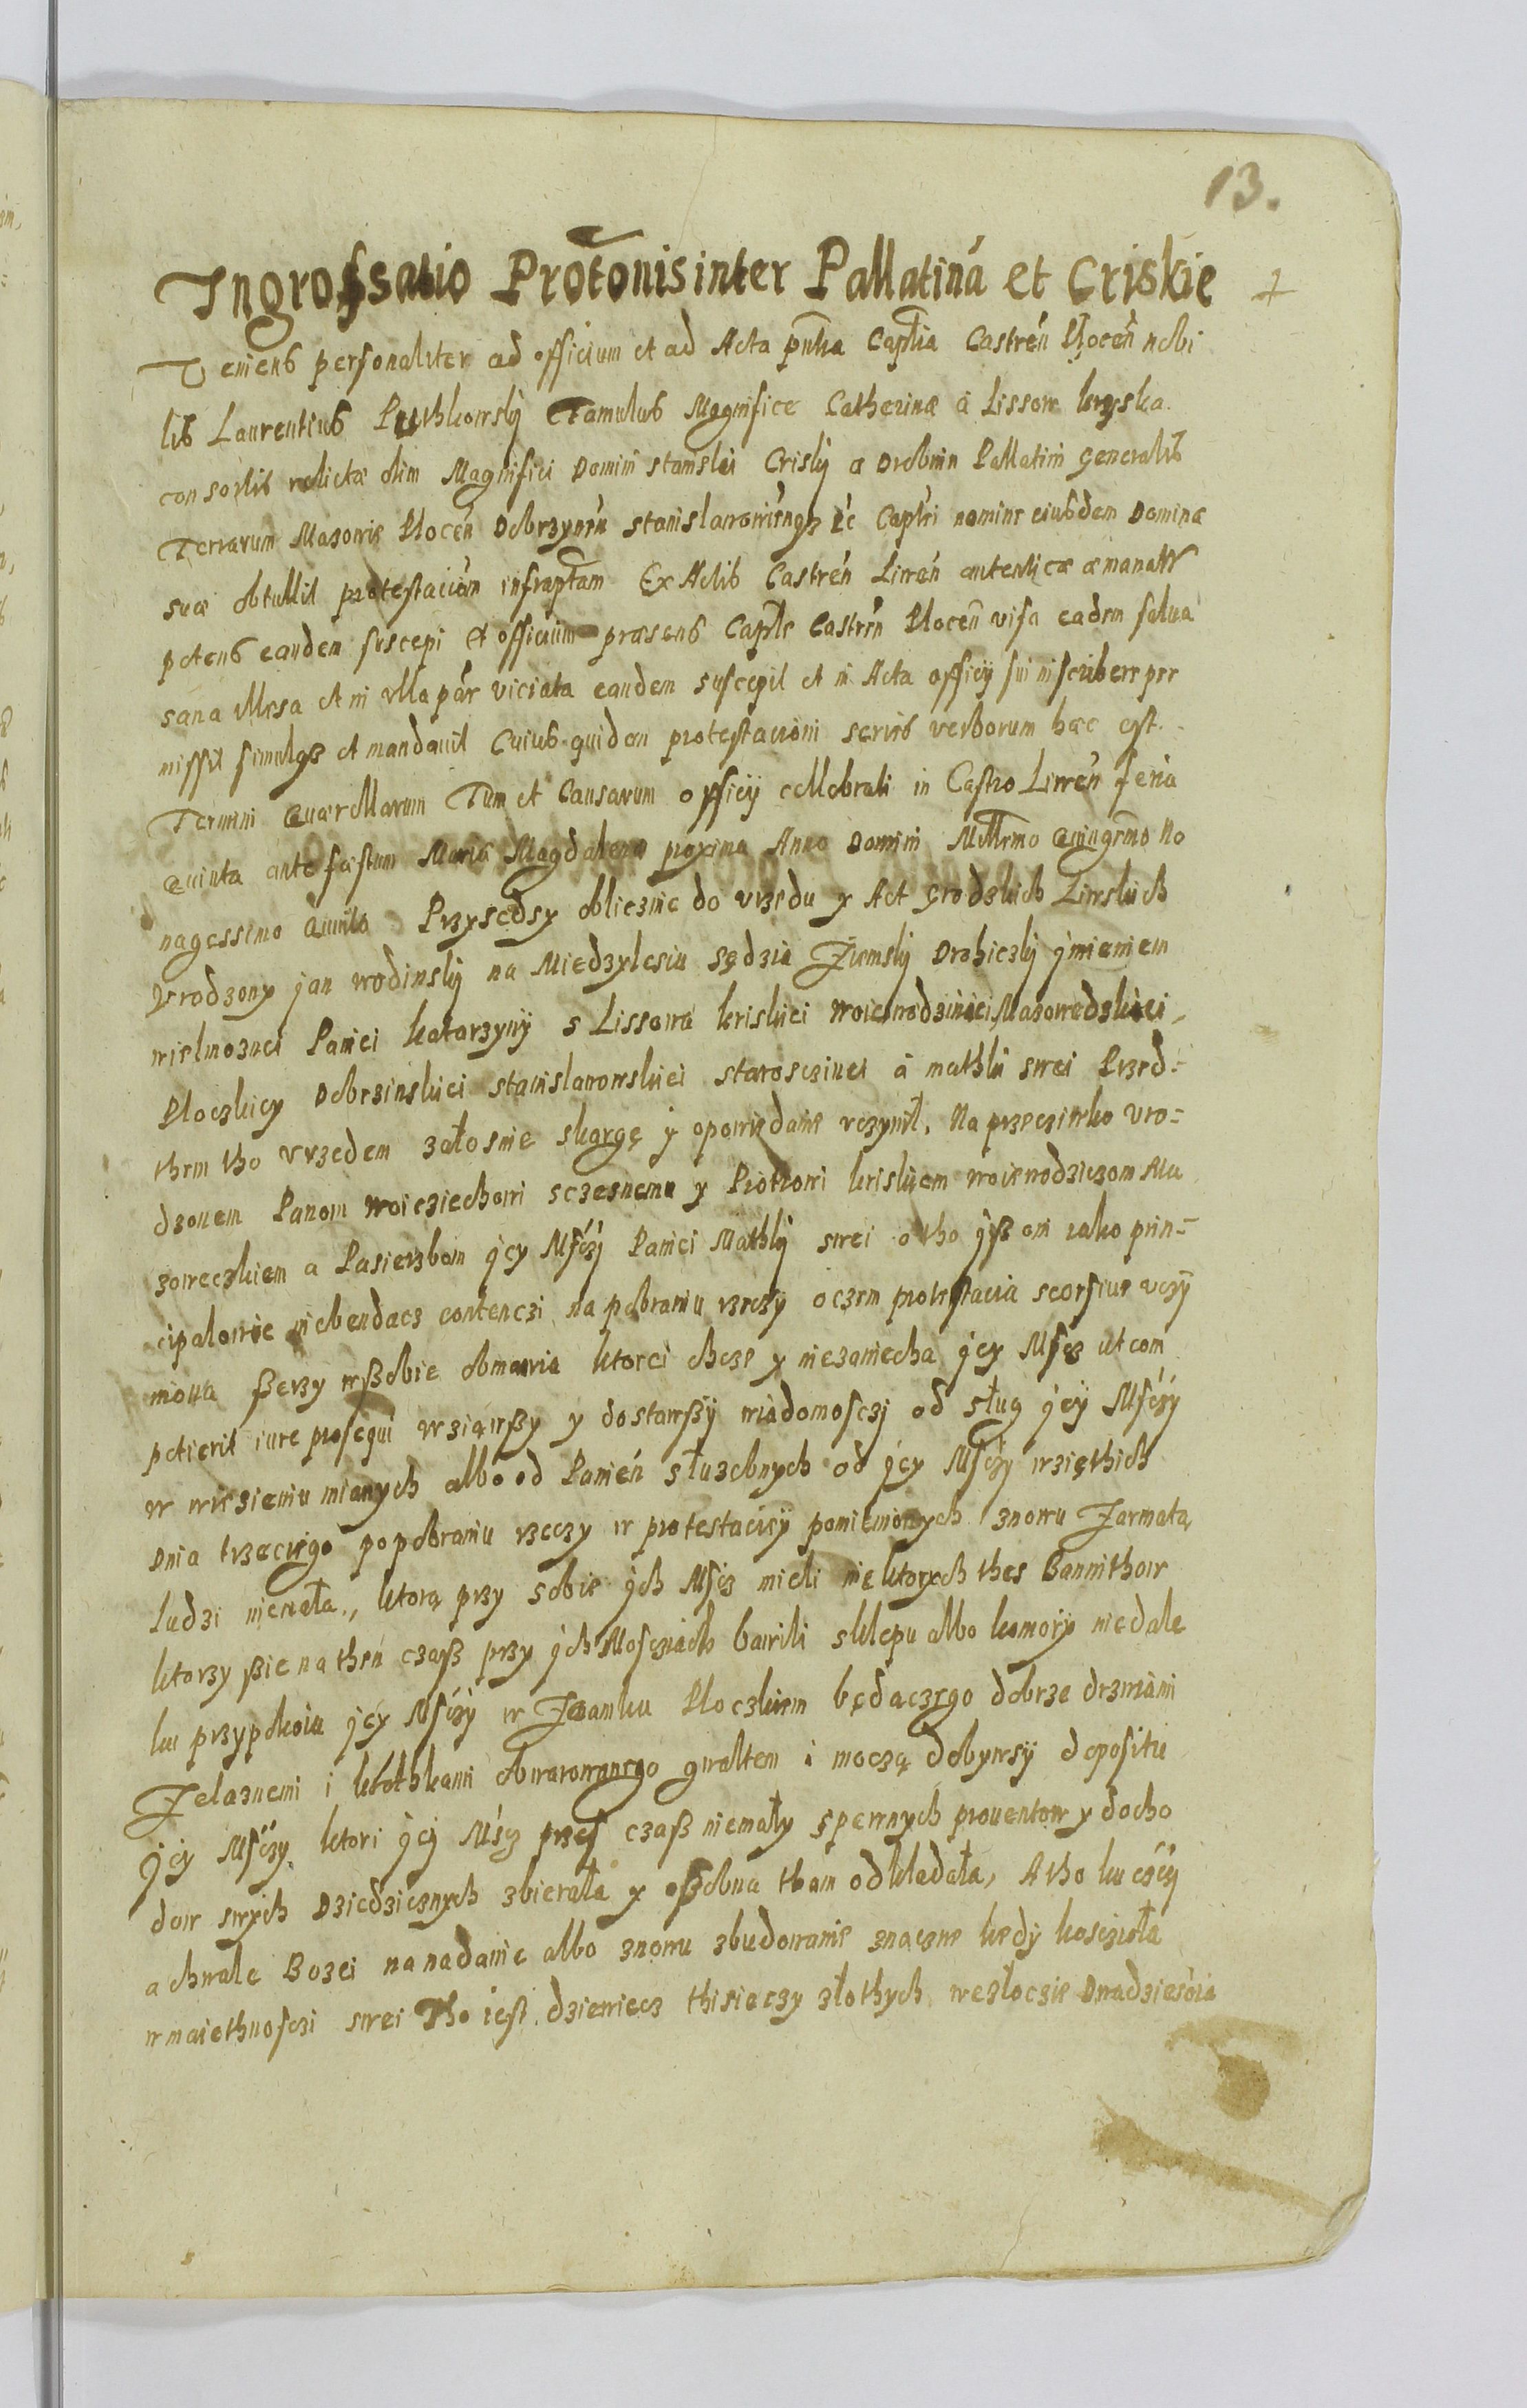 13.
Ingrossatio Protonis inter Pallatiná et Criskie
Veniens personaliter ad officium et ad Acta pntia Captlia Castren Plocen nobi
lis Laurentius Puthkowsky Famulus Magnifice Catherinæ á Lissow kryska
consortis relictæ olim Magnifici Domini stanislai Crisky a Drobnin Pallatini generalis
Terrarum Masovie Plocen Dobrzynen stanislavoviengz ec Captri nomine eiusdem Dominæ
suæ obtullit protestacion infraptam Ex Actis Castren Liwen autentice æmanatt
petens eandem suscepi Et officium præsens Captle Castren Plocen visa eadem salua
sana illesa et in ulla par viciata eandem suscepit et in Acta officy sui inscribere per
missit simulqz et mandauit Cuius quidem protestacioni series verborum hæc est.
Termini Querellarum Tum et Causarum officy cellebrati in Castro Liwen feria
Quinta ante festum Mariæ Magdalenæ proxima Anno Domini Millrmo Quingrmo No
nagessimo Quinto Przyssedsy oblicznie do vrzedu y Act grodzkich Liwskich
Vrodzony jan wodinsky na Miedzylesiu sędzia Ziemsky Drohiczky ymieniem
wielmoznei Paniei katarzyny s Lissowa kriskiei woiewodzinei Mazowedzkiei,
Ploczkiey Dobrzinskiei stanislawowskiei starosczinei á mathki swei Przed=
them tho vrzedem załosnie skargę y opowiedanie vczynił, Na przecziwko vro=
dzonem Panom woicziechowi sczesnemu y Piotrowi kriskiem woiewodziczom Ma
zoweczkiem a Pasierzbom yey Msczy Paniei Mathky swei o tho yß oni iako prin=
cipalowie niebendacz contenczi na pobraniu rzeczy oczem protestacia seorsiue vczy
niona ßerzy wßobie obmawia ktorei chcze y niezaniecha yey Mscz ut com
petierit iure prosequi wziąwßy y dostawßy wiadomosczi od sług yey Msczy
w wiezieniu mianych albo od Panień słuzebnych od yey Msczy wzięthich
Dnia trzeciego popobraniu rzeczy w protestacicy pomienionych znowu Zarmatą
ludzi niemała, ktorą przy sobie ych Mscz mieli niektorych thes Bannithow
ktorzy ßie na then czasß przy ych Mosczaich bawili sklepu albo komory niedale
ku przypokoiu yey Msczy w Zamku Ploczkiem będaczego dobrze drzwiami
Zelaznemi i kłothkami obwarowanego gwaltem i moczą dobywsy depositu
yey Msczy ktori yey Mscz przes czasß niemały s pewnych prouentow y docho
dow swych Dziedzicznych zbierała y oßobna tham odkladała, A tho ku czci
a chwale Bozei na nadanie albo znowu zbudowanie znaczne kedy kosczioła
w maiethnosczi swei Tho iest dziewiecz thisieczy złothych we złoczie Dwadziescia